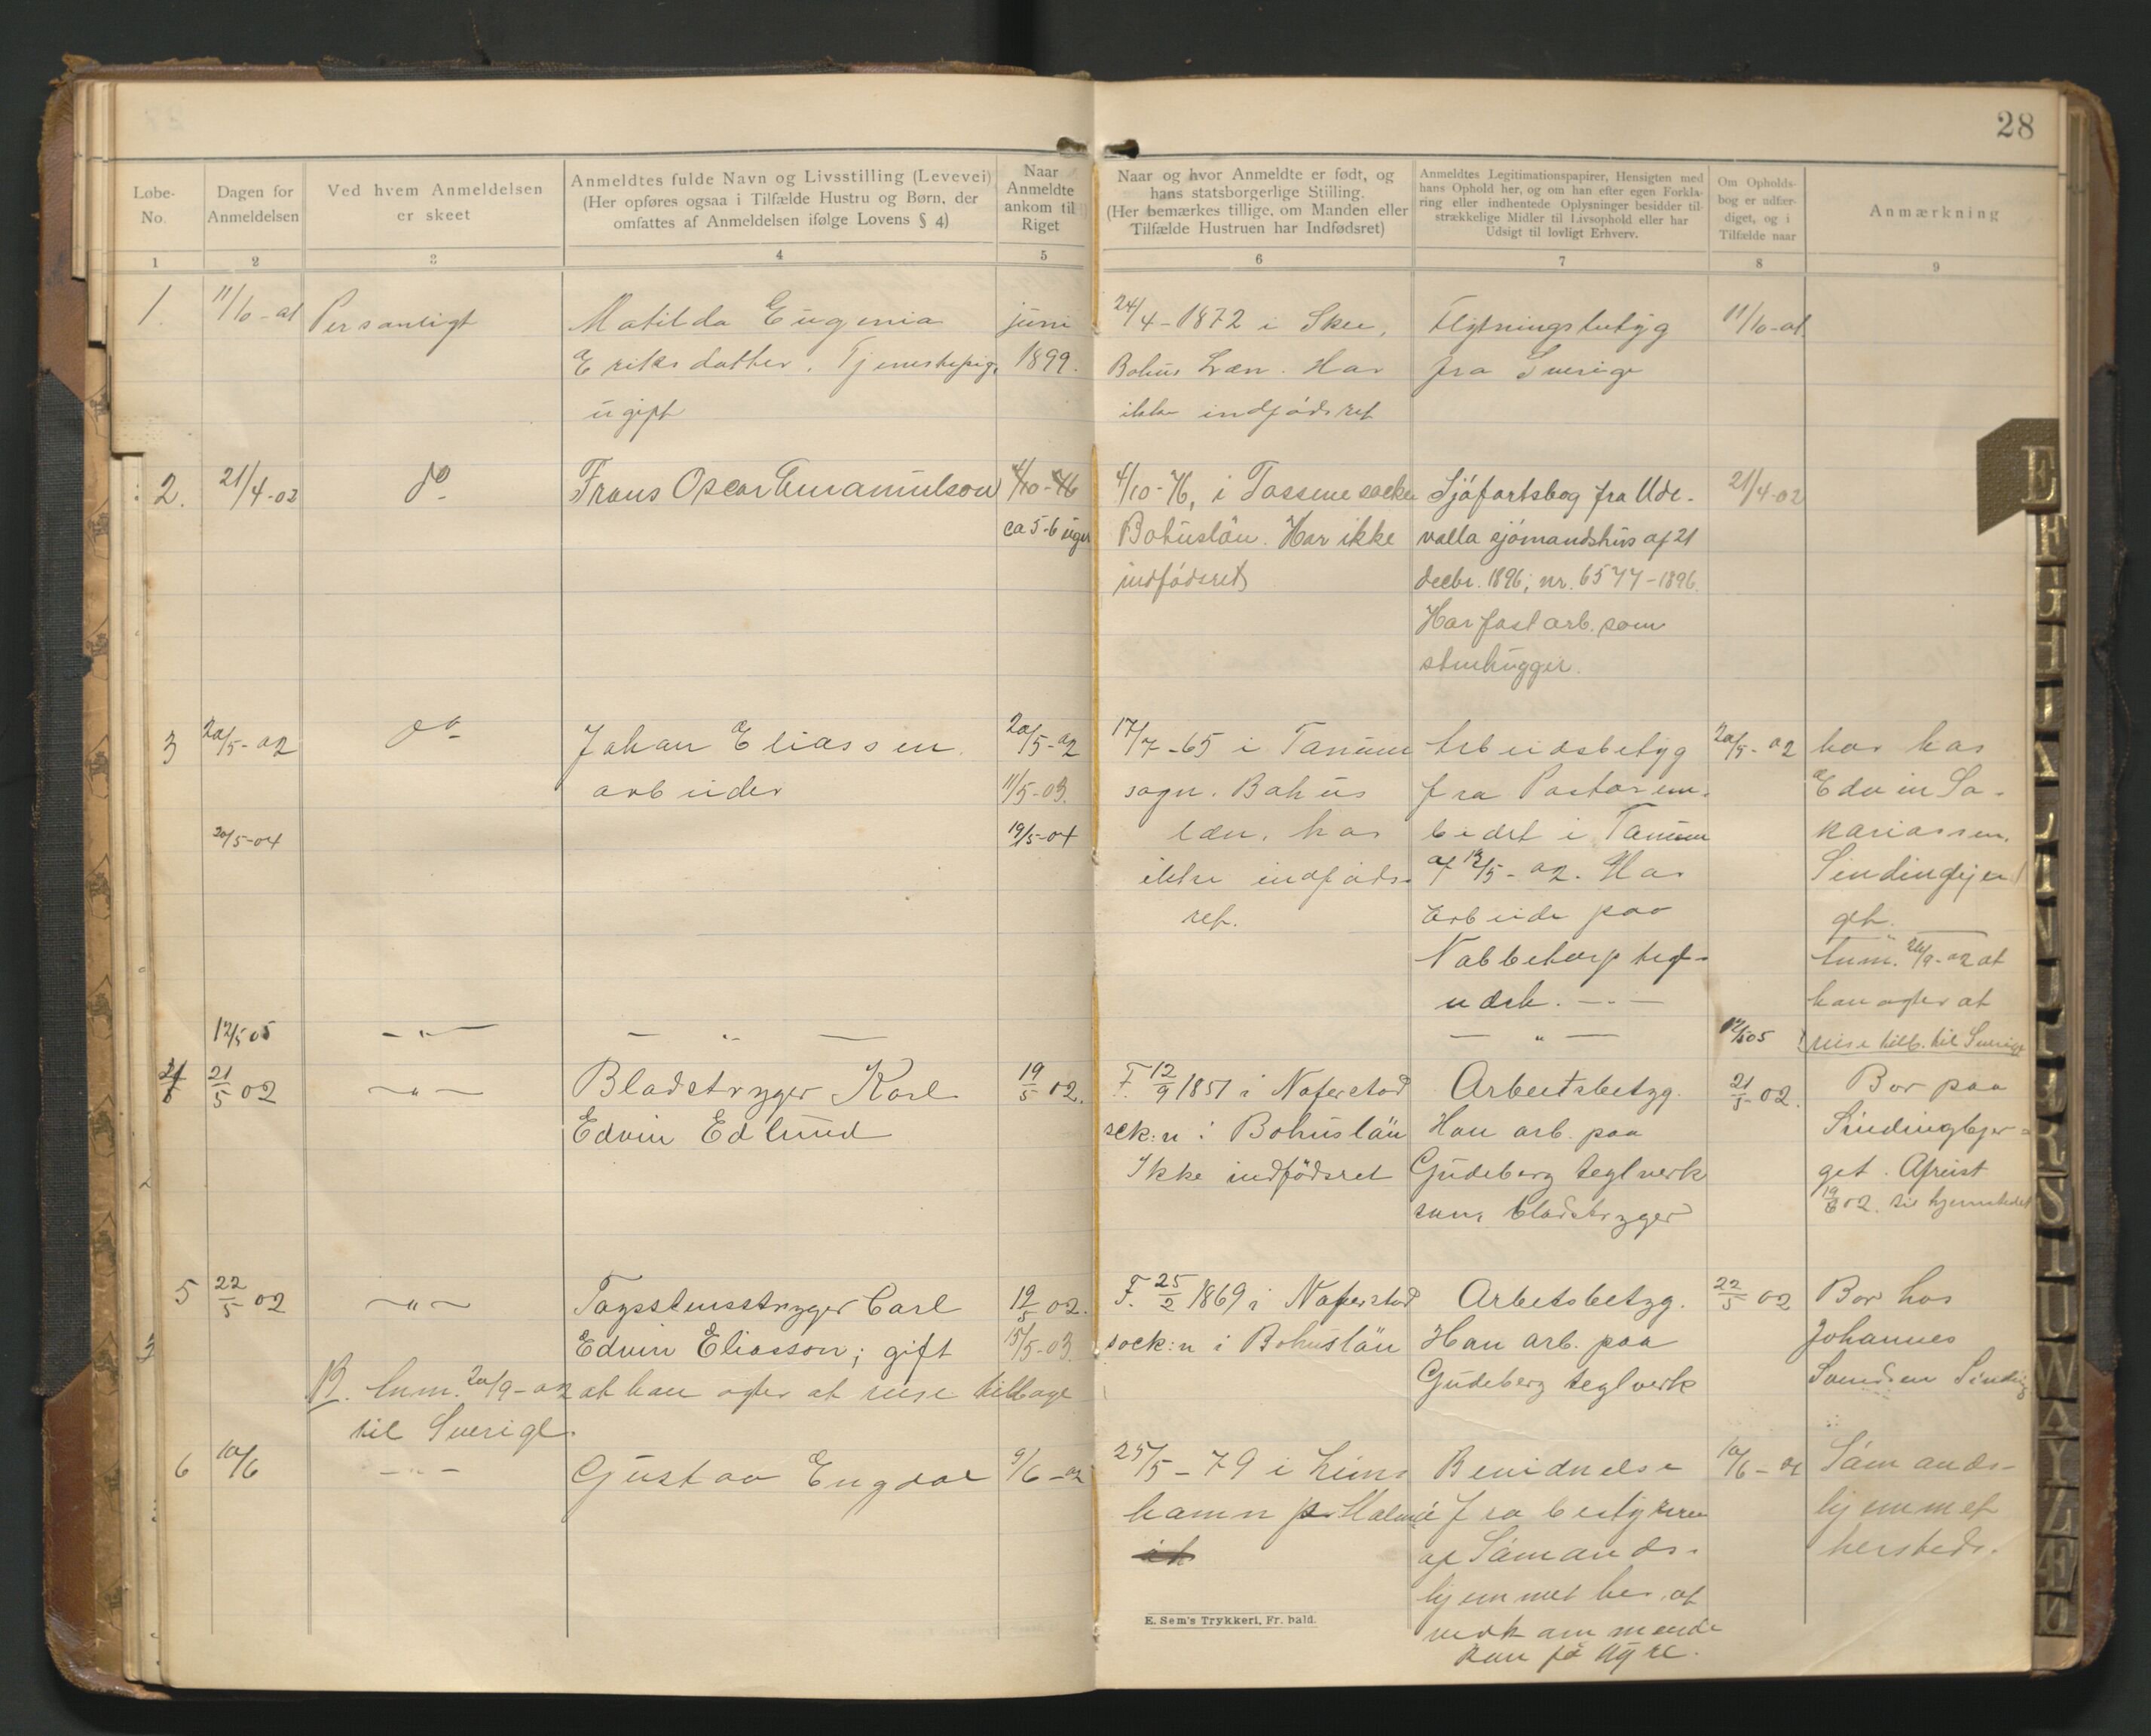 28
Løbe-
No.
Dagen for
Anmeldelsen
Ved hvem Anmeldelsen
er skeet
Anmeldtes fulde Navn og Livsstilling (Levevei)
(Her opføres ogsaa i Tilfælde Hustru og Børn, der
omfattes af Anmeldelsen ifølge Lovens § 4)
Naar
Anmeldte
ankom til
Riget
Naar og hvor Anmeldte er født, og
hans statsborgerlige Stilling.
(Her bemærkes tillige, om Manden eller
Tilfælde Hustruen har Indfødsret)
Anmeldtes Legitimationspapirer, Hensigten med
hans Ophold her, og om han efter egen Forkla-
ring eller indhentede Oplysninger besidder til-
strækkelige Midler til Livsophold eller har
Udsigt til lovligt Erhverv.
Om Opholds-
bog er udfær-
diget, og i
Tilfælde naar
Anmærkning
1 2 3 4 5 6 7 8 9
1 11/10-01 Personligt
Matilda Eugenia
Eriksdatter. Tjenestepige
ugift
juni
1899.
24/4-1872 i Skee,
Bohus Læn. Har
ikke indfødsret
Flytningsbetyg
fra Sverige
11/10-01
2. 21/4-02 do
Frans Oscar Emanuelson
4/10-76
ca 5-6 uger
4/10-76, i Tossene socken
Bohuslän. Har ikke
indfødsret
Sjøfartsbog fra Udde-
valla sjømandshus af 21
decbr. 1896; nr. 6577-1896.
Har fast arb. som
stenhugger.
21/4-02
3 20/5-02 do
Johan Eliassen
arbeider
20/5-02
11/5-03.
20/5-04
19/5-04
17/7-65 i Tanum
sogn. Bohus
læn. har
ikke indføds-
ret.
Arbeidsbetyg
fra Pastorem-
bedet i Tanum
af 12/5-02. Har
Arbeide paa
Nabbetorp tegl-
verk.
20/5-02
bor hos
Edvin Sa-
kariassen,
Sindingfjel
get.
Anm. 20/9-02 at
han agter at
reise tilb. til Sverige
12/5 05 -"- -"- -"- 12/5 05
4 21/5 02 -"-
Bladstryger Karl
Edvin Edlund
19/5 02.
F. 12/9 1851 i Naferstad
sck:n i Bohuslän
Ikke indfödsret
Arbeitsbetyg.
Han arb. paa
Gudeberg teglverk
som bladstryger
21/5 02.
Bor paa
Sindingbjer-
get. Afreist
19/6 02. til hjemstedet
5 22/5 02 -"-
Tagsstensstryger Carl
Edvin Eliasson; gift
19/5 02.
15/5-03.
F. 25/2 1869 i Naferstad
sock:n i Bohuslän
Arbetsbetyg.
Han arb. paa
Gudeberg teglverk
22/5 02
Bor hos
Johannes
Svendsen Sinding
Anm. 20/9-02 at han agter at reise tilbage
til Sverige.
6 10/6 -"-
Gustav Engdal
9/6-02
25/5-79 i Lims
hamn pr. Malmö
Bevidnelse
fra bestyreren
af Sømands-
hjemmet her, at
vedkommende
kan få hyre.
10/6-02
Sømands-
hjemmet
hersteds.
E. Sem's Trykkeri, Fr. hald.
E
F
G
H
I
K
L
M
N
O
P
R
S
T
U
W
A
Y
Z
Æ
Ø